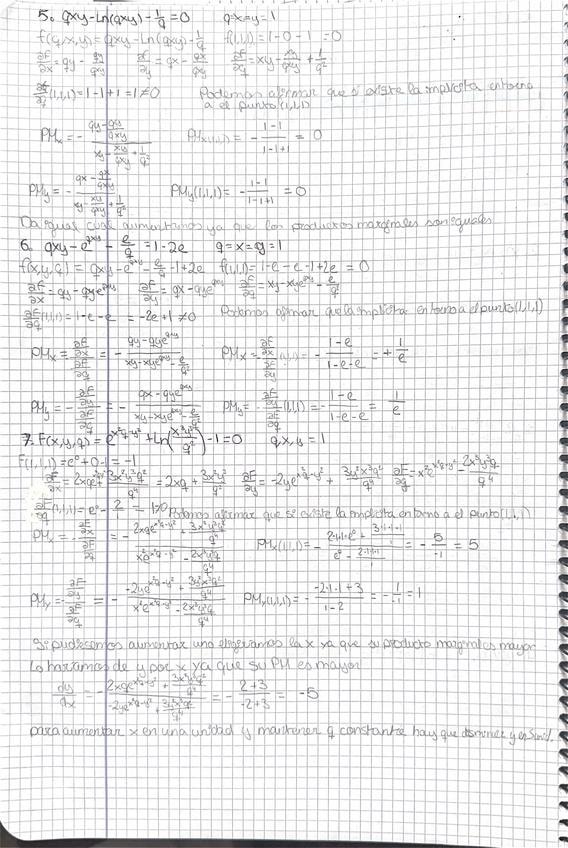 5. qxy-Ln(qxy)-1/q=0 q=x=y=1
f(q,x,y)=qxy-Ln(qxy)-1/q f(1,1,1)=1-0-1=0
∂F/∂x=qy-qy/qxy ∂F/∂y=qx-qx/qxy ∂F/∂q=xy-xy/qxy+1/q²
∂F/∂q(1,1,1)=1-1+1=1≠0 Podemos afirmar que si existe la implicita entorno
a el punto(1,1,1)
PMx=-(qy-qy/qxy)/(xy-xy/qxy+1/q²) PMx(1,1,1)=-(1-1)/(1-1+1)=0
PMy=-(qx-qx/qxy)/(xy-xy/qxy+1/q²) PMy(1,1,1)=-(1-1)/(1-1+1)=0
Da igual cual aumentamos ya que los productos marginales son iguales
6. qxy-e^qxy-e/q=1-2e q=x=y=1
f(x,y,q)=qxy-e^qxy-e/q-1+2e f(1,1,1)=1-e-e-1+2e=0
∂F/∂x=qy-qye^qxy ∂F/∂y=qx-qye^qxy ∂F/∂q=xy-xye^qxy-e/q
∂F/∂q(1,1,1)=1-e-e=-2e+1≠0 Podemos afirmar que la implicita entorno a el punto(1,1,1)
PMx=(∂F/∂x)/(∂F/∂q)=-(qy-qye^qxy)/(xy-xye^qxy-e/q) PMx=-(∂F/∂x)/(∂F/∂y)(1,1,1)=-(1-e)/(1-e-e)=+1/e
PMy=-(∂F/∂y)/(∂F/∂q)=-(qx-qye^qxy)/(xy-xye^qxy-e/q) PMy=-(∂F/∂y)/(∂F/∂q)(1,1,1)=-(1-e)/(1-e-e)=1/e
7. F(x,y,q)=e^(x²q-y²)+Ln(x³y³/q²)-1=0 q,x,y=1
F(1,1,1)=e⁰+0-1=-1
∂F/∂x=2xqe^(x²q-y²)+3x²y³q²/q⁴=2xq+3x²y³/q² ∂F/∂y=-2ye^(x²q-y²)+3y²x³q²/q⁴ ∂F/∂q=x²e^(x²q-y²)-2x³y³q/q⁴
∂F/∂q(1,1,1)=e⁰-2=-1≠0 Podemos afirmar que si existe la implicita entorno a el punto(1,1,1)
PMx=-(∂F/∂x)/(∂F/∂q)=-(2xqe^(x²q-y²)+3x²y³q²/q⁴)/(x²e^(x²q-y²)-2x³y³q/q⁴) PMx(1,1,1)=-(2·1·1·e⁰+3·1·1·1/1)/(e⁰-2·1·1·1/1)=-5/-1=5
PMy=-(∂F/∂y)/(∂F/∂q)=-(-2ye^(x²q-y²)+3y²x³q²/q⁴)/(x²e^(x²q-y²)-2x³y³q/q⁴) PMy(1,1,1)=-(-2·1·1+3)/(1-2)=-1/-1=1
Si pudiesemos aumentar uno elegiriamos la x ya que su producto marginal es mayor
Lo hariamos de y por x ya que su PM es mayor
dy/dx=-(2xqe^(x²q-y²)+3x²y³q²/q⁴)/(-2ye^(x²q-y²)+3y²x³q²/q⁴)=-(2+3)/(-2+3)=-5
para aumentar x en una unidad y mantener q constante hay que disminuir y en 5 unid.